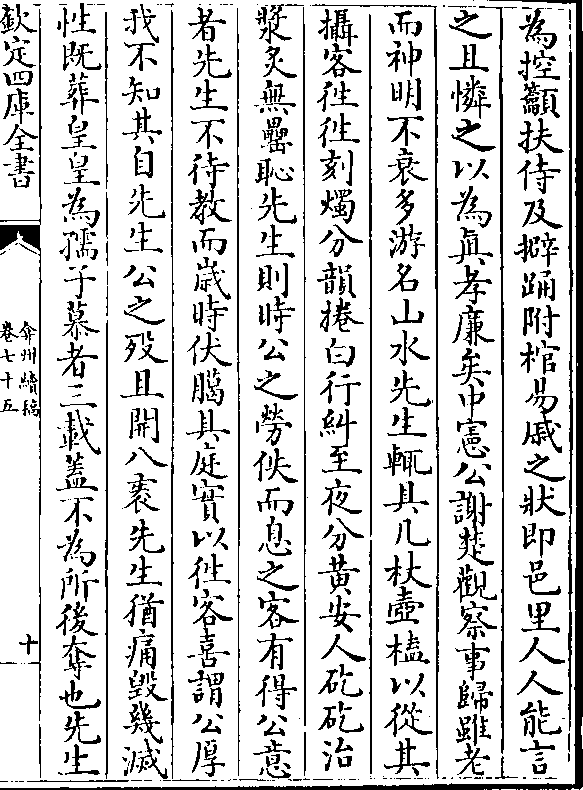 為控籲扶侍及擗踊附棺易戚之狀即邑里人人能言
之且憐之以為真孝廉矣中憲公謝楚觀察事歸雖老
而神明不衰多游名山水先生輒具几杖壺榼以從其
攝客徃徃刻燭分韻捲白行糾至夜分黄安人矻矻治
漿炙無罍恥先生則時公之勞佚而息之客有得公意
者先生不待教而嵗時伏臈具庭實以徃客喜謂公厚
我不知其自先生公之歿且開八袠先生猶痛毁幾滅
性既葬皇皇為孺子慕者三載蓋不為所後奪也先生
欽定四庫全書
弇州續稿
卷七十五
十